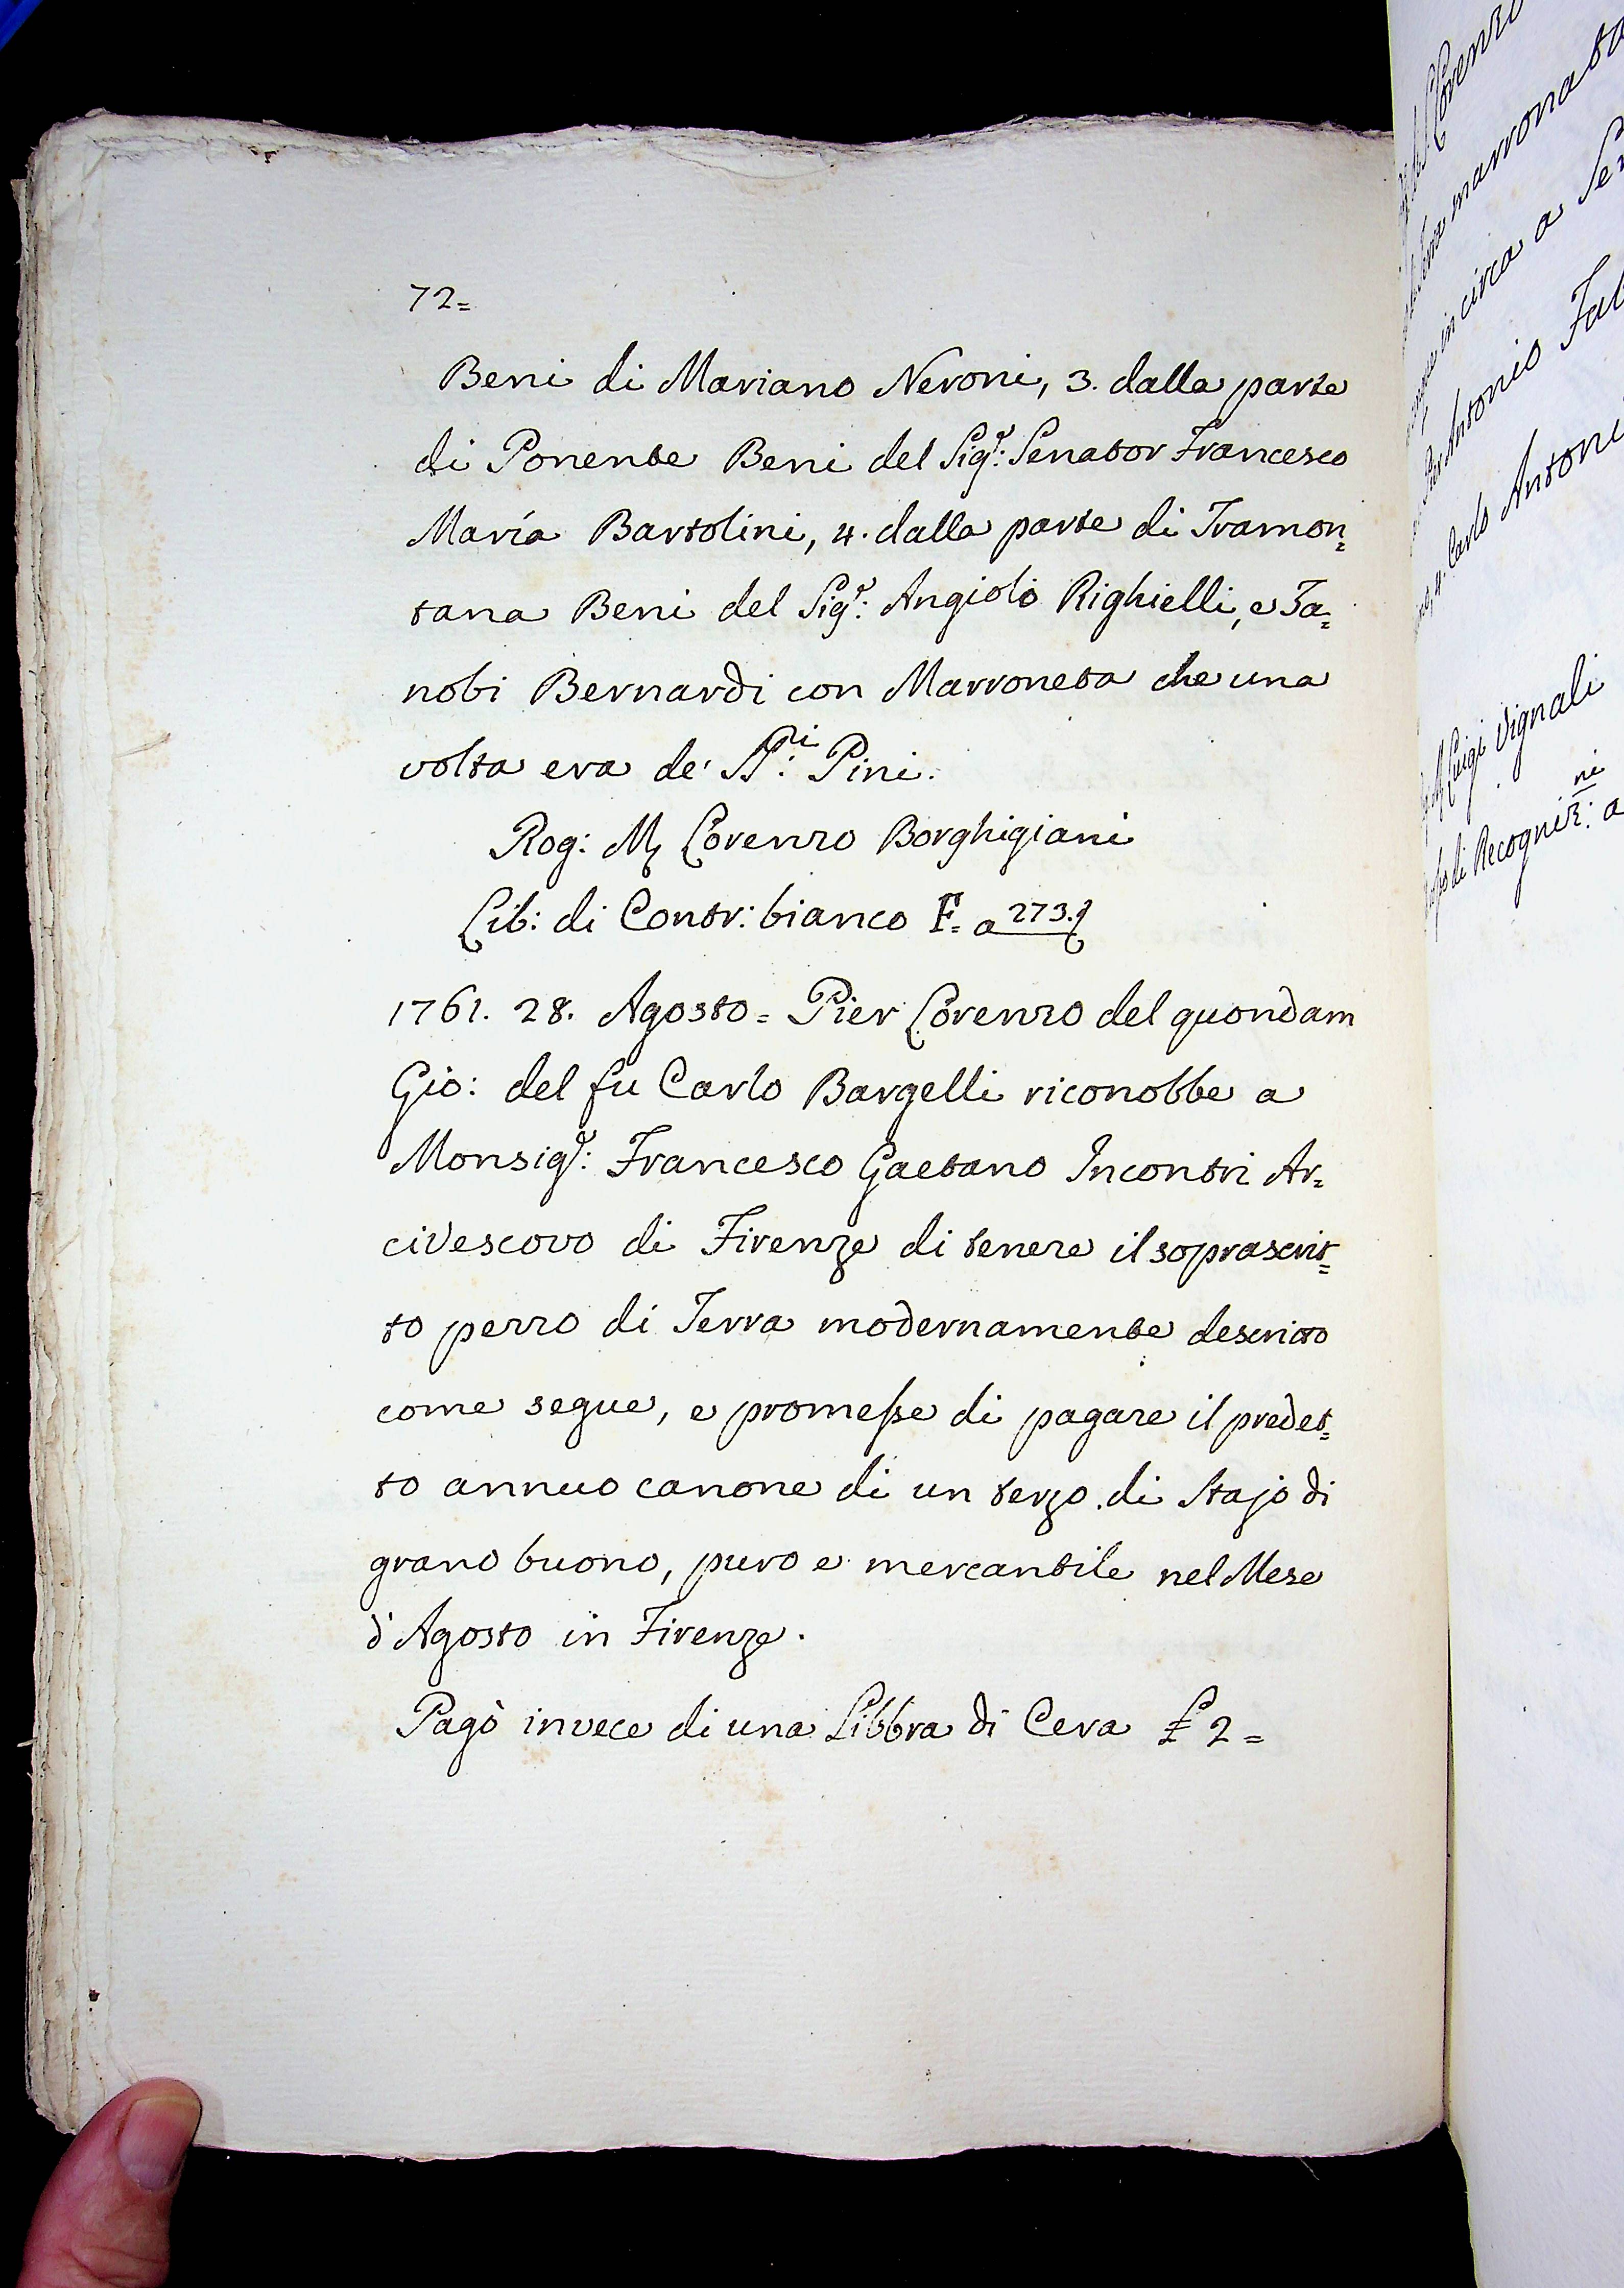 72=
Beni di Mariano Neroni, 3. dalla parte
di Ponente Beni del Sig.r: Senator Francesco
Maria Bartolini, 4. dalla parte di Tramon=
tana Beni del Sig.r: Angiolo Righielli, e Za=
nobi Bernardi con Marroneta che una
volta era de' SS.ri: Pini.
Rog: M Lorenzo Borghigiani
Lib: di Contr: bianco F. a 273.
1761. 28. Agosto = Pier Lorenzo del quondam
Gio: del fu Carlo Bargelli riconobbe a
Monsig.r: Francesco Gaetano Incontri Ar=
civescovo di Firenze di tenere il soprascrit=
to pezzo di Terra modernamente descritto
come segue, e promesse di pagare il predet=
to annuo canone di un terzo di Stajo di
grano buono, puro e mercantile nel Mese
d'Agosto in Firenze.
Pagò invece di una Libbra di Cera £ 2=
Lorenzo
marronata
in circa a
Antonio
4. Carlo Antoni
Luigi Vignali
di Recogniz:ni a